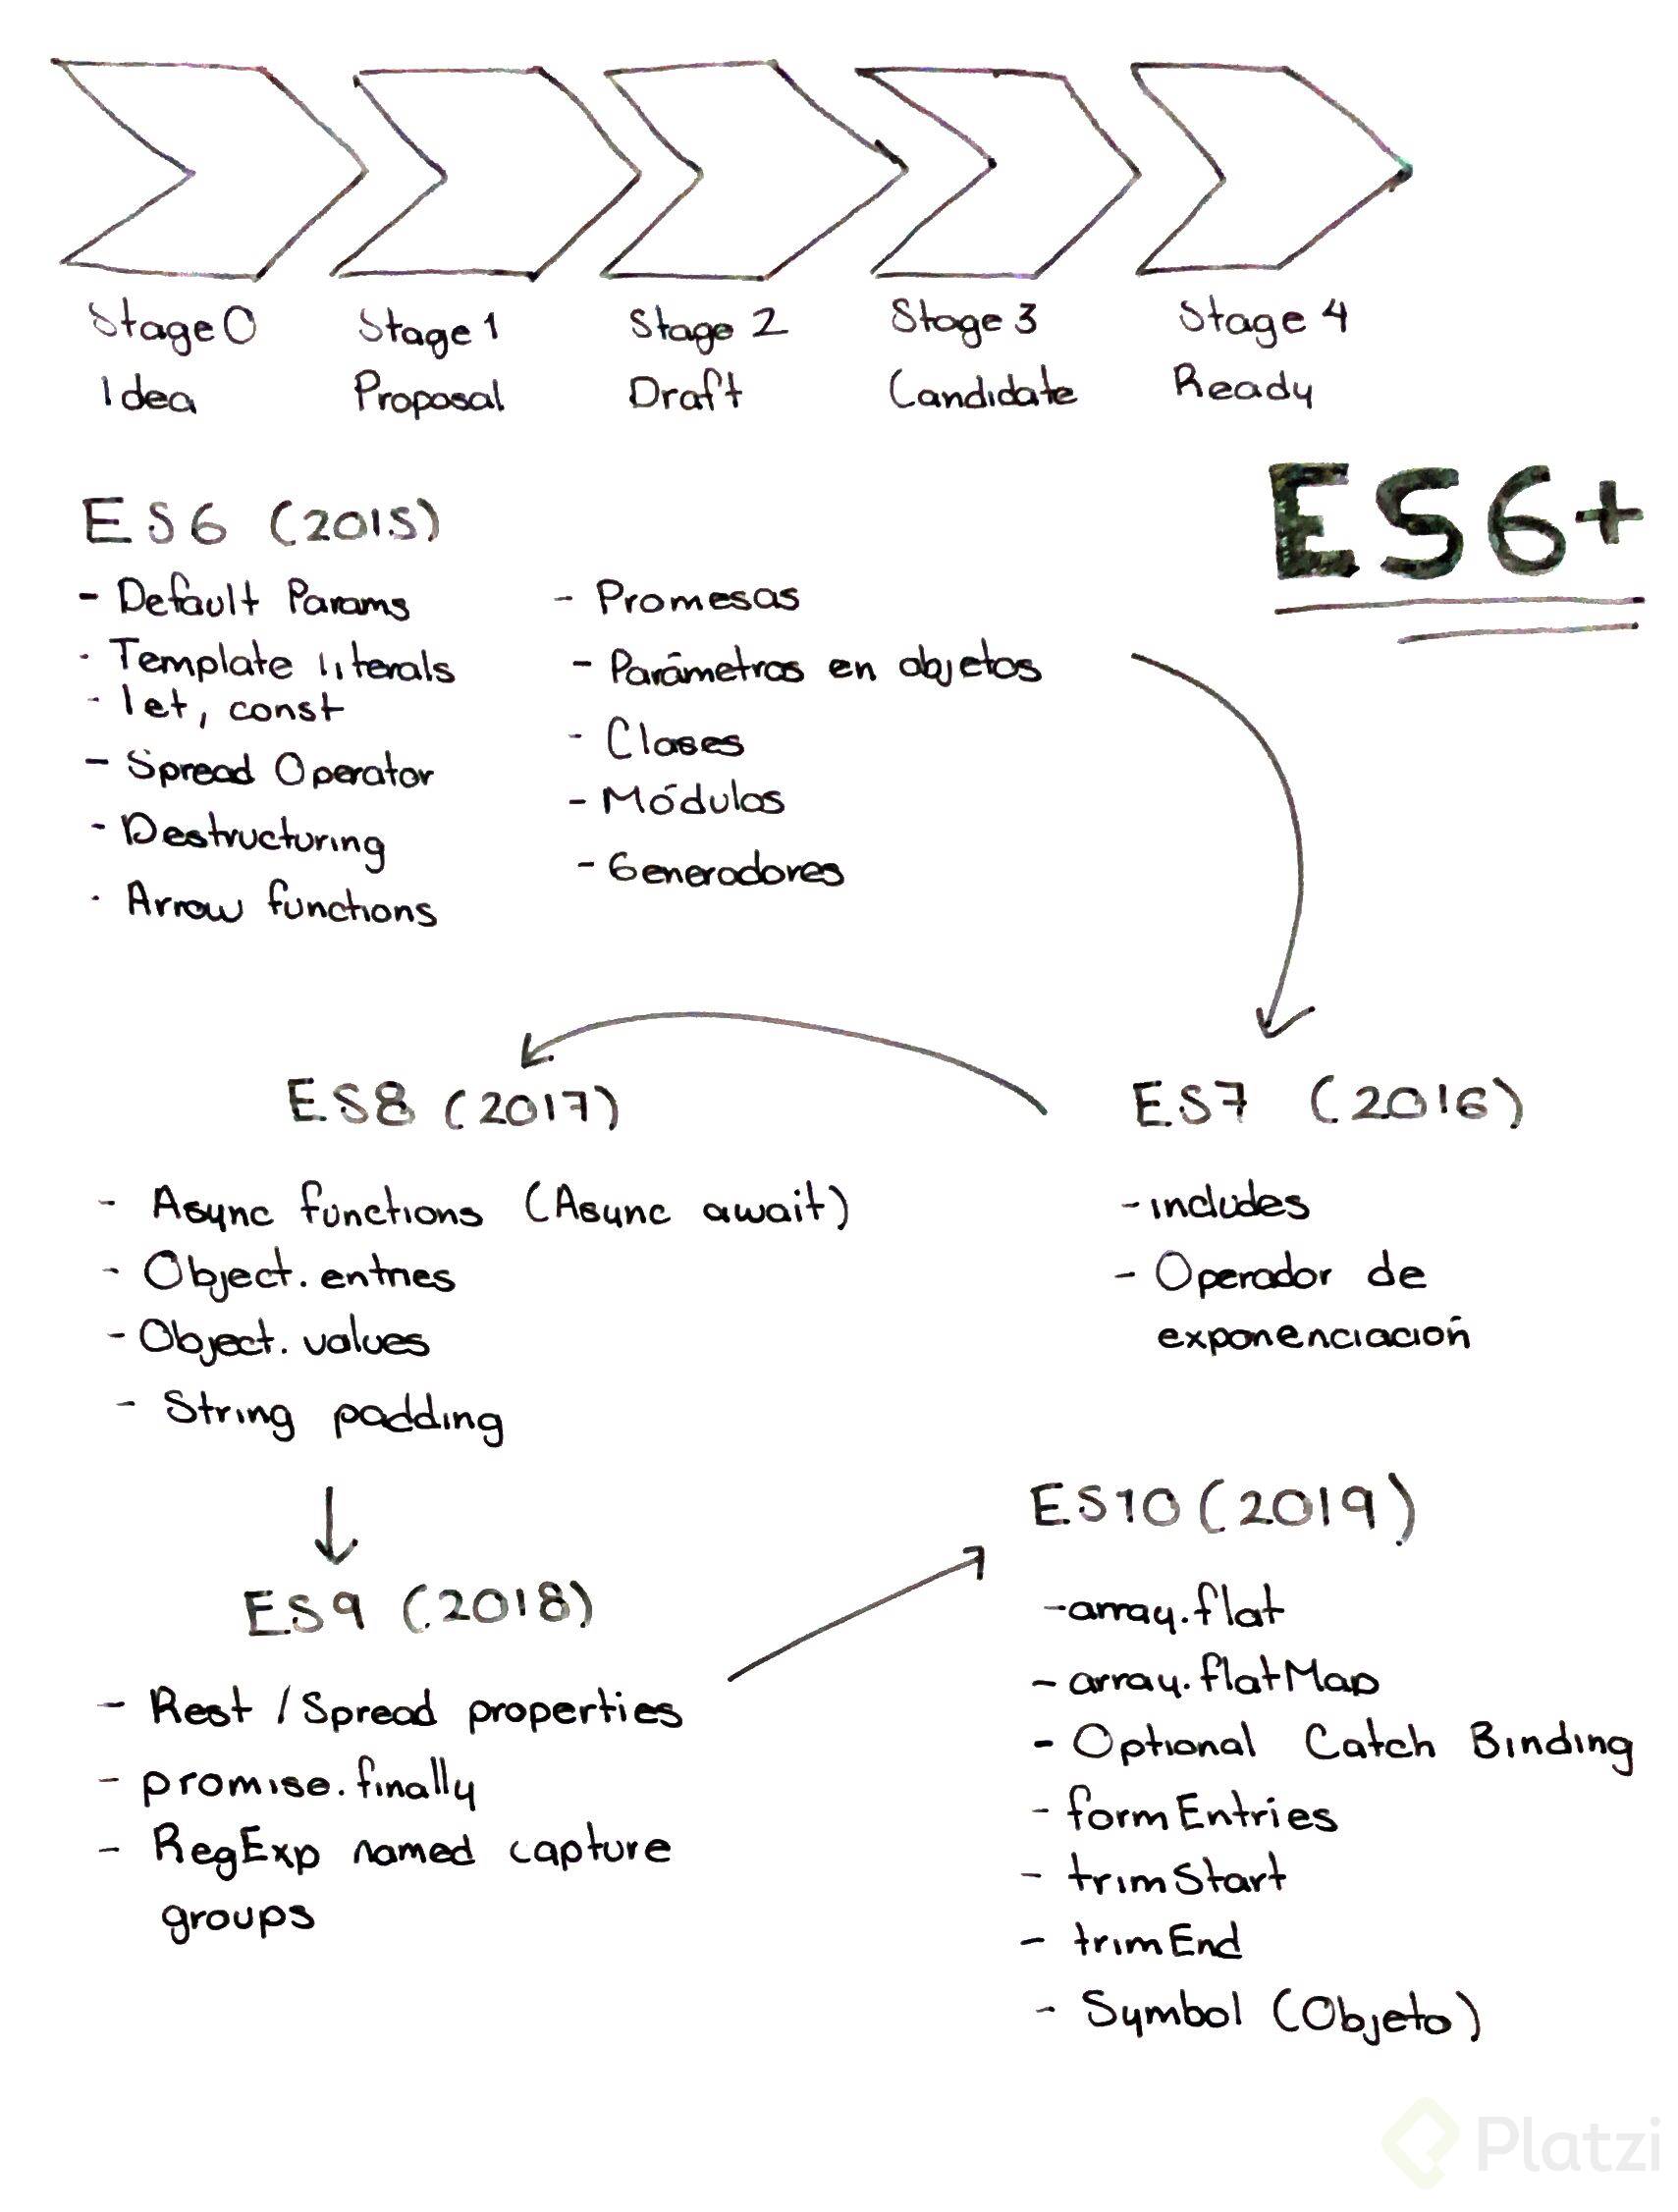 Stage 0
Idea
Stage 1
Proposal
Stage 2
Draft
Stage 3
Candidate
Stage 4
Ready
ES6+
ES6 (2015)
- Default Params
- Template literals
- let, const
- Spread Operator
- Destructuring
- Arrow functions
- Promesas
- Parámetros en objetos
- Clases
- Módulos
- Generadores
ES7 (2016)
- includes
- Operador de
exponenciación
ES8 (2017)
- Async functions (Async await)
- Object.entries
- Object.values
- String padding
ES9 (2018)
- Rest / Spread properties
- promise.finally
- RegExp named capture
groups
ES10 (2019)
- array.flat
- array.flatMap
- Optional Catch Binding
- formEntries
- trimStart
- trimEnd
- Symbol (Objeto)
Platzi